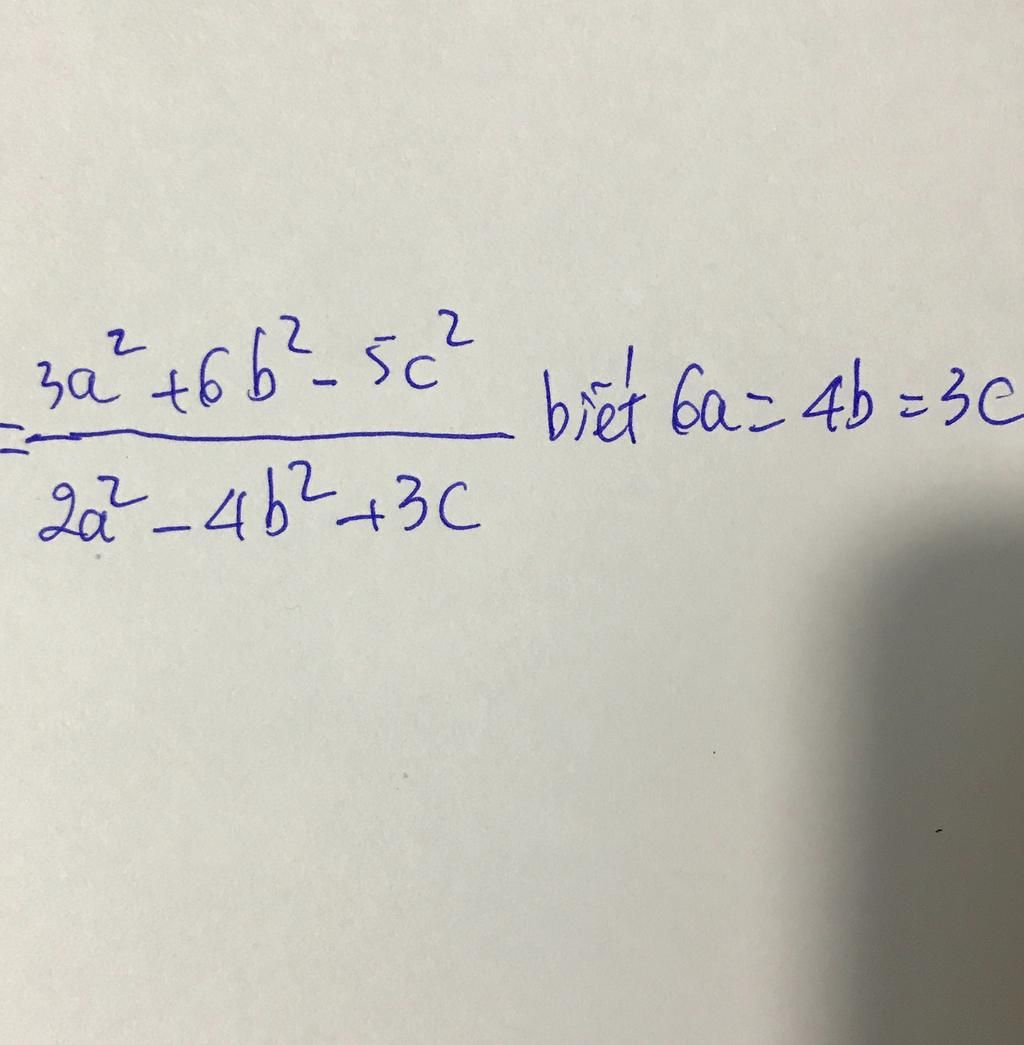 = (3a² + 6b² - 5c²) / (2a² - 4b² + 3c) biết 6a = 4b = 3c